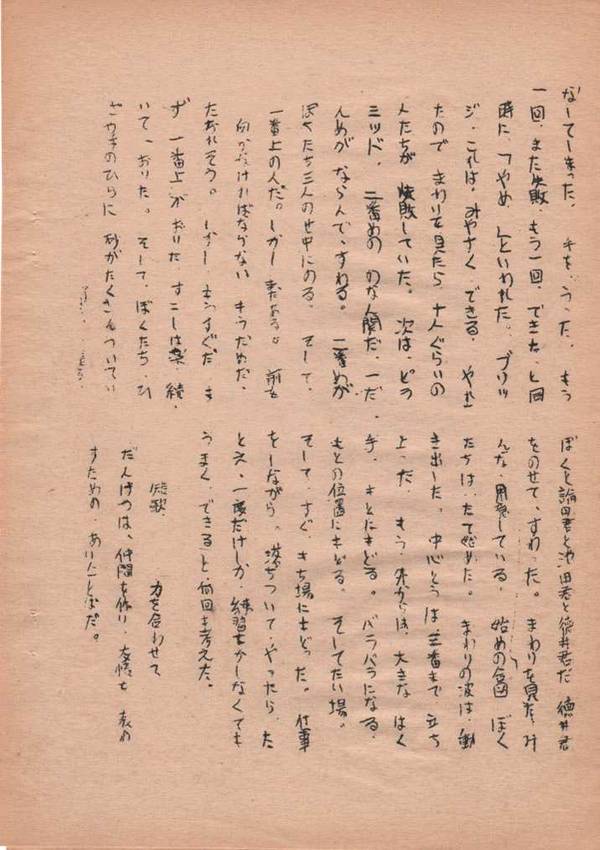 なってしまった。手を、うった。もう
一回、また失敗、もう一回、できた、と同
時に、「やめ」といわれた。ブリッ
ジ、これは、みやすく できる、やれ
たので まわりを見たら、十人ぐらいの
人たちが 失敗していた。次は、ピラ
ミッド、二番めの 人間だ、一だ
んめが ならんで、すわる。二番めが
ぼくたち三人のせ中にのる。そして、
一番上の人だ。しかし まだある。前を
向かなければならない もうだめだ、
たおれそう。しかし もうすぐだ ま
ず 一番上 がおりた すこしは楽、続
いて、おりた。そして、ぼくたち、ひ
ざや手のひらに 砂がたくさんついてい
ぼくと 君と池田君と徳井君だ 徳井君
をのせて、すわった。まわりを見た、み
んな、用意している、始めの合図 ぼく
たちは、たて始めた。まわりの波は、動
き出した。中心とうは、三番まで、立ち
上った、もう 外からは、大きな はく
手、もとにもどる。バラバラになる、
もとの位置にもどる。そしてたい場。
そして、すぐ、もち場にもどった。仕事
をしながら。落ちついて、やったら、た
とえ、一度だけしか、練習をかしなくても
うまく、できる」と、何回も考えた。
短歌
力を合わせて
だんけつは、仲間を作り、友情を 表わ
すための、あい とばだ。